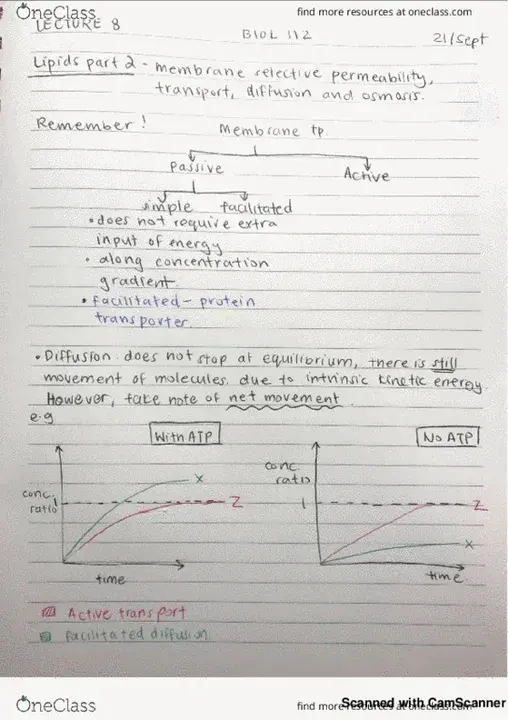 OneClass
find more resources at oneclass.com
LECTURE 8
BIOL 112
21/Sept
Lipids part 2 - membrane selective permeability,
transport, diffusion and osmosis.
Remember!
Membrane tp
Passive
Active
simple
facilitated
• does not require extra
input of energy
• along concentration
gradient.
• facilitated - protein
transporter.
• Diffusion does not stop at equilibrium, there is still
movement of molecules. due to intrinsic kinetic energy
However, take note of net movement.
e.g
With ATP
No ATP
conc.
ratio
1
X
Z
time
conc
ratio
1
Z
X
time
Active transport
facilitated diffusion
OneClass
find more resources at oneclass.com
Scanned with CamScanner